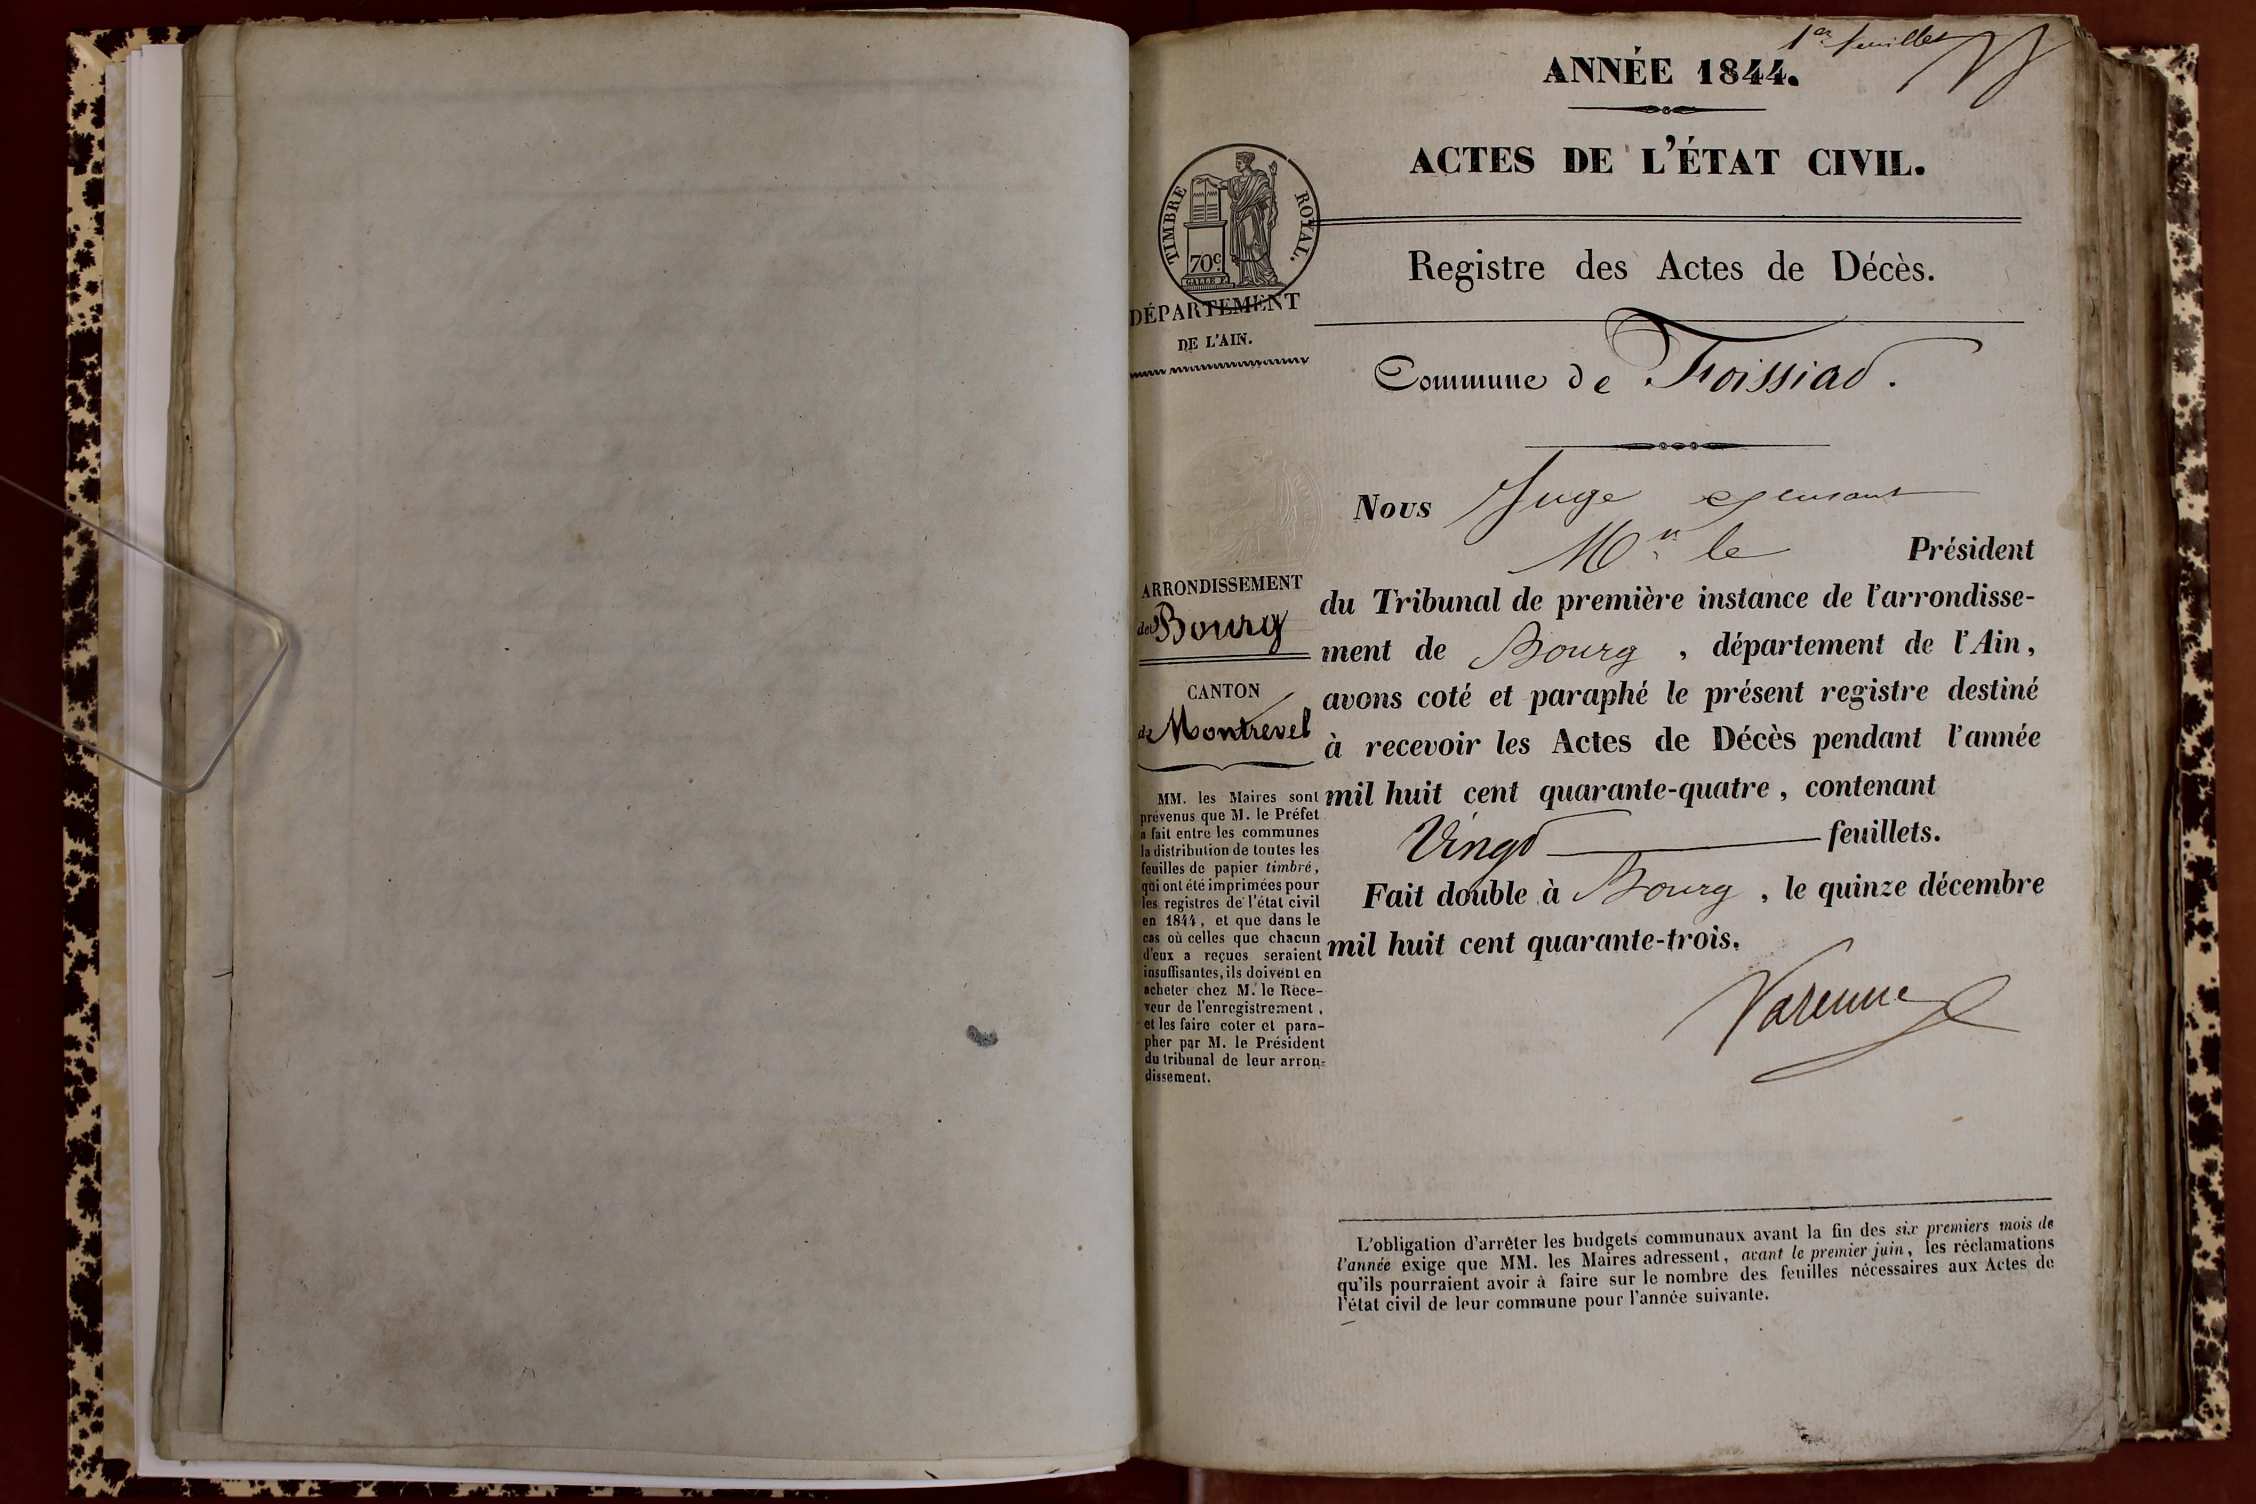 1er feuillet
ANNÉE 1844.
ACTES DE L'ÉTAT CIVIL.
TIMBRE ROYAL.
70c
GALLE F.
Registre des Actes de Décès.
DÉPARTEMENT
DE L'AIN.
Commune de Foissiat.
Nous Juge
Mr. le Président
du Tribunal de première instance de l'arrondisse-
ment de Bourg, département de l'Ain,
avons coté et paraphé le présent registre destiné
à recevoir les Actes de Décès pendant l'année
mil huit cent quarante-quatre, contenant
Vingt feuillets.
Fait double à Bourg, le quinze décembre
mil huit cent quarante-trois.
Varenne
ARRONDISSEMENT
de Bourg
CANTON
de Montrevel
MM. les Maires sont
prévenus que M. le Préfet
a fait entre les communes
la distribution de toutes les
feuilles de papier timbré,
qui ont été imprimées pour
les registres de l'état civil
en 1844, et que dans le
cas où celles que chacun
d'eux a reçues seraient
insuffisantes, ils doivent en
acheter chez M. le Rece-
veur de l'enregistrement,
et les faire coter et para-
pher par M. le Président
du tribunal de leur arron-
dissement.
L'obligation d'arrêter les budgets communaux avant la fin des six premiers mois de
l'année exige que MM. les Maires adressent, avant le premier juin, les réclamations
qu'ils pourraient avoir à faire sur le nombre des feuilles nécessaires aux Actes de
l'état civil de leur commune pour l'année suivante.